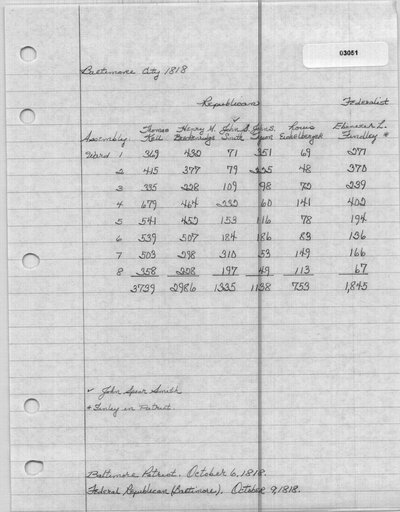 03051
Baltimore City 1818
Republican Federalist
✓
Thomas Henry M. John S. John S. Louis Ebenezer L.
Assembly Kell Breckenridge Smith Tyson Eichelberger Findley *
Ward 1 369 432 71 351 69 271
2 415 377 79 225 48 370
3 335 228 109 98 72 239
4 679 464 232 60 141 402
5 541 452 153 116 78 194
6 539 507 184 186 83 136
7 503 298 310 53 149 166
8 358 228 197 49 113 67
3739 2986 1335 1138 753 1,845
✓ John Spear Smith
* Finley in Patriot
Baltimore Patriot. October 6, 1818.
Federal Republican (Baltimore). October 9, 1818.